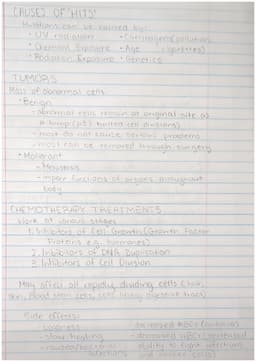 CAUSES OF 'HITS'
Mutations can be caused by:
• UV radiation
• Chemical Exposure • Age
• Radiation Exposure • Genetics
TUMORS
Mass of abnormal cells
• Benign
- abnormal cells remain at original site as
a lump (p53 halted cell divisions)
- most do not cause serious problems
- most can be removed through surgery
• Malignant
- Metastasis
- impair functions of organs throughout
body
CHEMOTHERAPY TREATMENTS
Work at various stages
1. Inhibitors of Cell Growth (Growth Factor
Proteins e.g. hormones)
2. Inhibitors of DNA Duplication
3. Inhibitors of Cell Division
May affect all rapidly dividing cells (hair,
skin, blood stem cells, cells lining digestive tract)
Side effects:
- slow healing
ability to fight infections